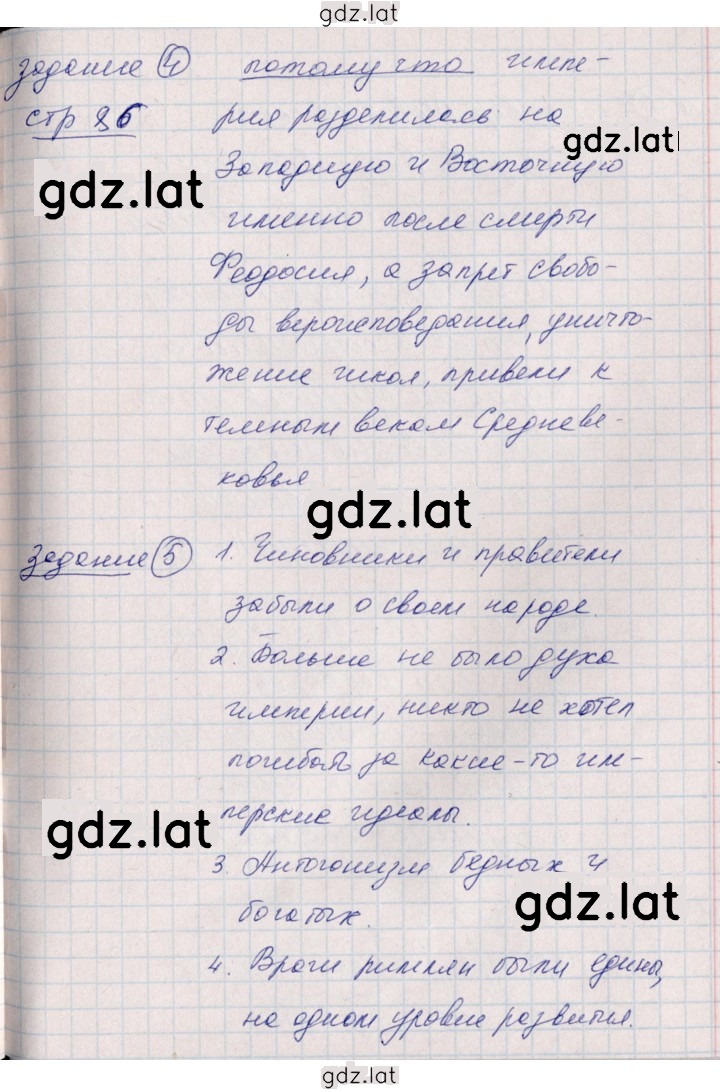 gdz.lat
задание 4 потому что импе-
стр 86 рия разделилась на
gdz.lat
Западную и Восточную
gdz.lat
именно после смерти
Феодосия, а запрет свобо-
ды вероисповедания, уничто-
жение школ, привели к
темным векам Средневе-
ковья
gdz.lat
задание 5 1. Чиновники и правители
забыли о своем народе.
2. Больше не было духа
империи, никто не хотел
погибать за какие-то им-
перские идеалы.
gdz.lat
3. Антогонизм бедных и
gdz.lat
богатых.
4. Враги римлян были едины,
на одном уровне развития.
gdz.lat